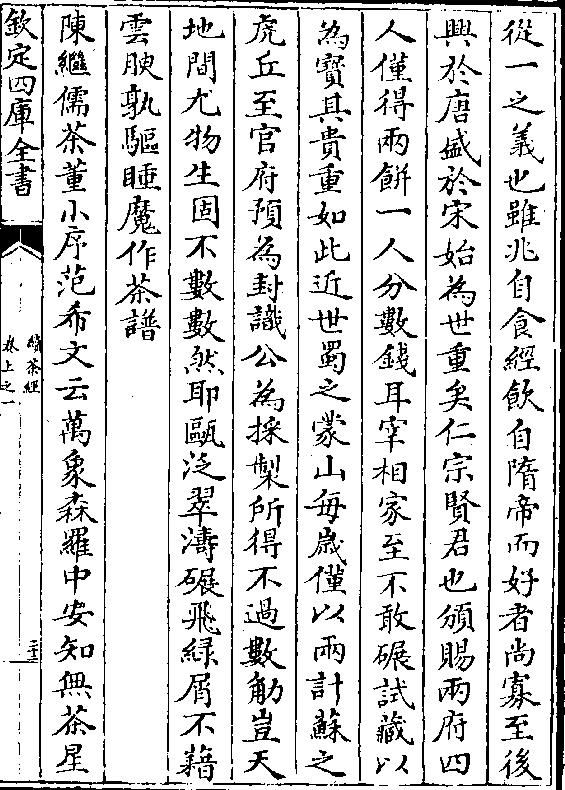 從一之義也雖兆自食經飲自隋帝而好者尚寡至後
興於唐盛於宋始為世重矣仁宗賢君也頒賜兩府四
人僅得兩餅一人分數錢耳宰相家至不敢碾試藏以
為寶其貴重如此近世蜀之蒙山每歲僅以兩計蘇之
虎丘至官府預為封識公為採製所得不過數觔豈天
地間尤物生固不數數然耶甌泛翠濤碾飛綠屑不藉
雲腴孰驅睡魔作茶譜
陳繼儒茶董小序范希文云萬象森羅中安知無茶星
欽定四庫全書
續茶經
卷上之一
二十三